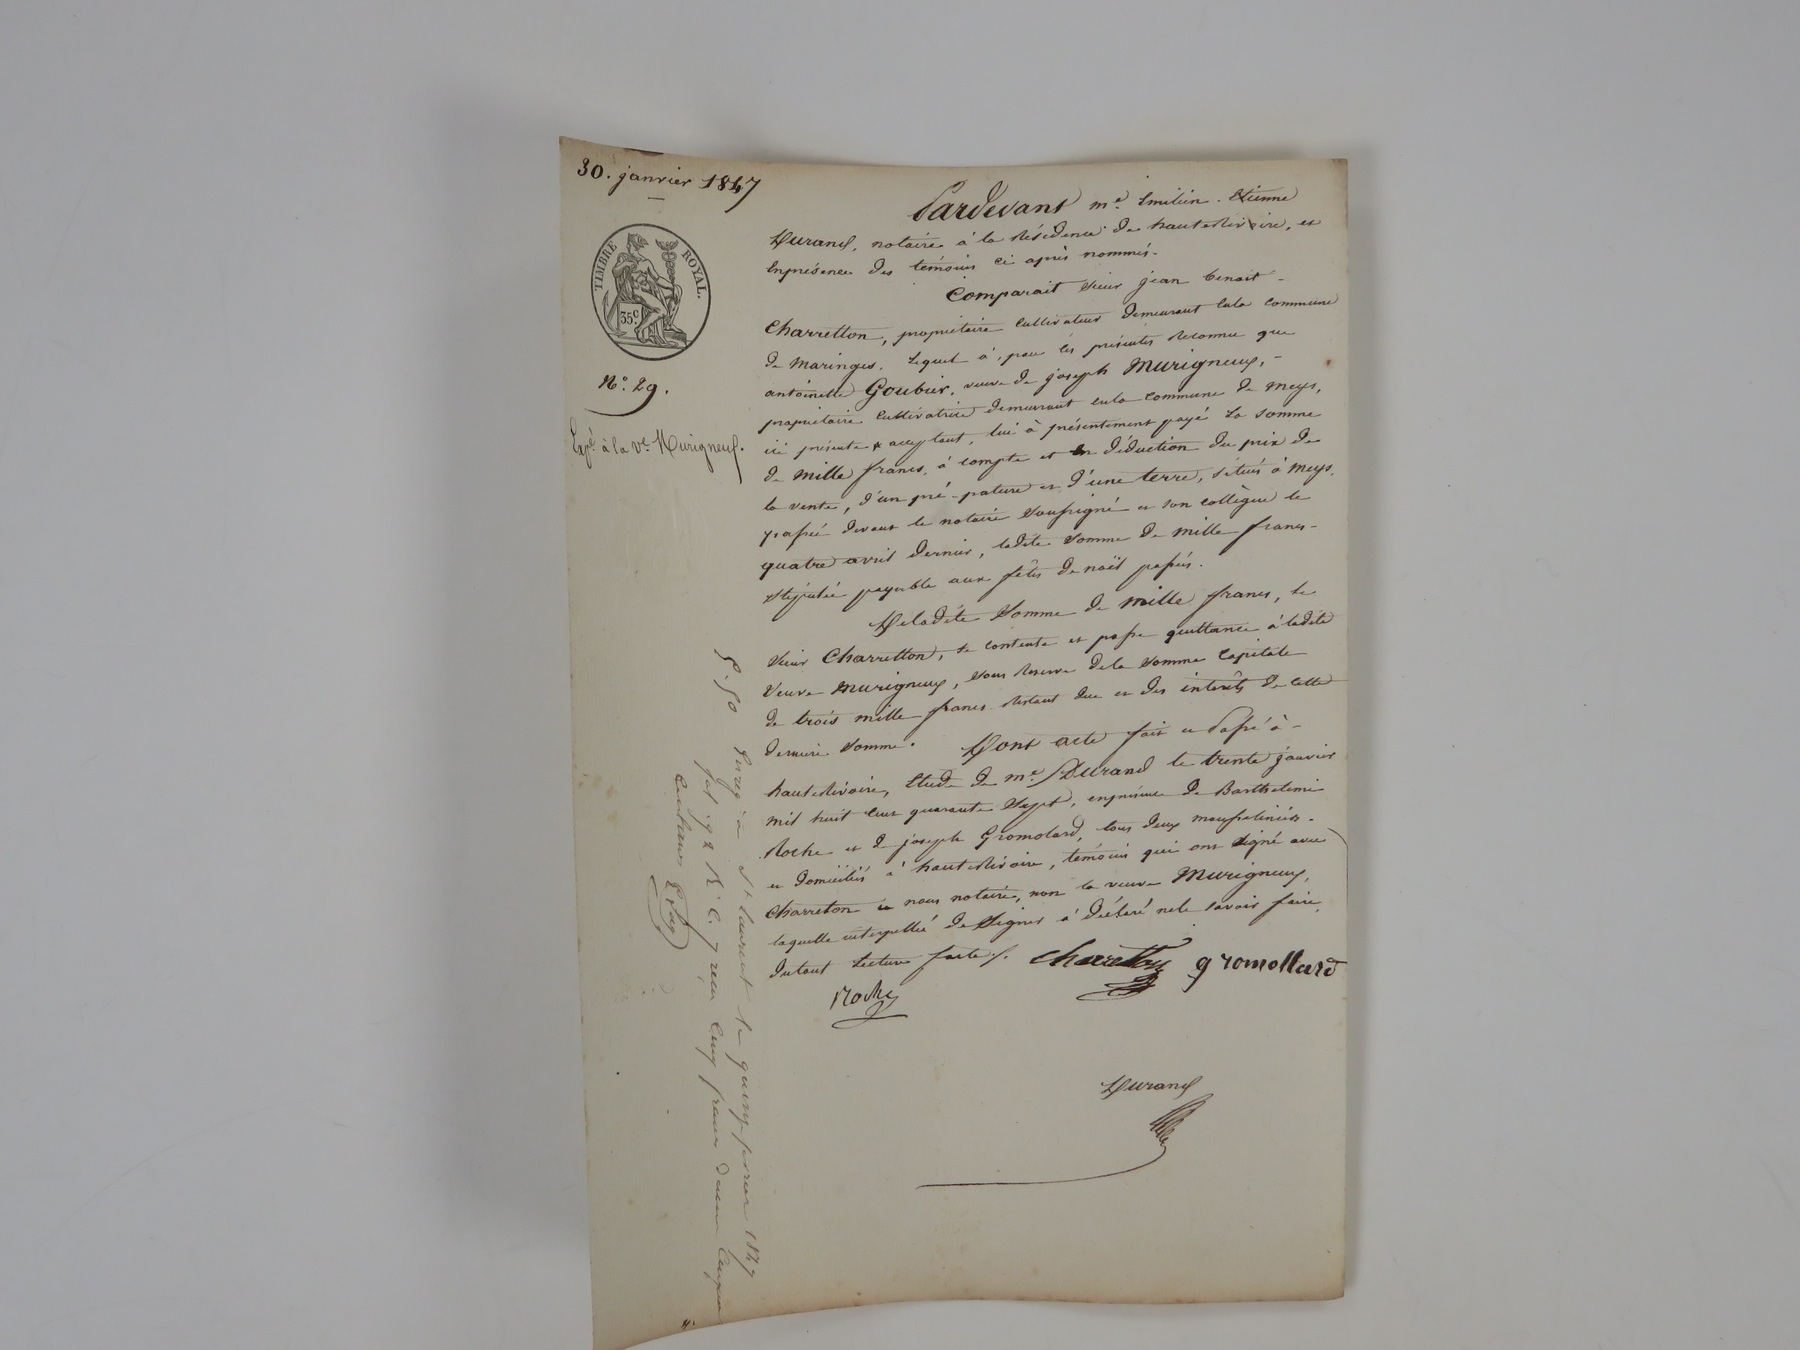 30. janvier 1847
TIMBRE ROYAL.
35c
N.º 29.
Expé à la Ve Murigneux.
Pardevant me. Emilien. Etienne
Durand, notaire à la Résidence de hauteRivoire, et
Enprésence des témoins ci après nommés.
Comparait sieur jean benoit-
Charretton, propriétaire Cultivateur demeurant enla commune
de maringes. Lequel à, par les présentes Reconnu que
antoinette Goubier, veuve de joseph Murigneux,-
propriétaire Cultivatrice demeurant enla commune de meys,
ici présente & acceptant, lui à présentement payé la somme
de mille francs, à compte et en déduction du prix de
la vente, d'un pré-pature et d'une terre, situés à meys,
passée devant le notaire soussigné et son collègue le
quatre avril dernier, ladite somme de mille francs-
stipulée payable aux fêtes de noël passées.
Deladite somme de mille francs, le
sieur Charretton, se contente et passe quittance à ladite
veuve Murigneux, sous Reserve dela somme Capitale
de trois mille francs Restant due et des interêts de cette
derniere somme. Dont acte fait et Passé à-
hauteRivoire, Etude de me. Durand le trente janvier
mil huit cent quarante Sept, enprésence de Barthelemi
Roche et de joseph Gromolard, tous deux mousseliniers-
et domiciliés à hauteRivoire, témoins qui ont signé avec
Charreton et nous notaire, non la veuve Murigneux,
laquelle interpellée de Signer à déclaré nele savoir faire,
dutout Lecture faite /.
Charretton gromollard
Roche
Durand
5. 50 Enreg à St Laurent le quinze fevrier 1847
fol. 92 R. C. 7 reçu Cinq francs dixme Cinquante
Centimes